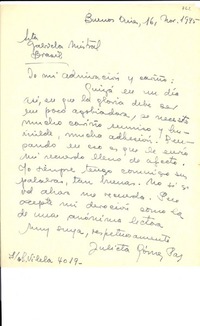 Buenos Aires, 16, Nov. 1945
Srta
Gabriela Mistral
Brasil
De mi admiración y cariño:
Quizá en un día
así, en que la gloria debe ser
un poco agobiadora, se necesita
mucho cariño sumiso y hu-
milde, mucha adhesión.
pando en eso es que le envío
mi recuerdo lleno de afecto.
Yo siempre tengo conmigo sus
palabras, tan buenas. No sé si
Ud. ahora me recuerda. Pero
acepte mi devoción como la
de una anónima lectora
muy suya, respetuosamente
Julieta Gómez Paz
S/c Vilela 4019-